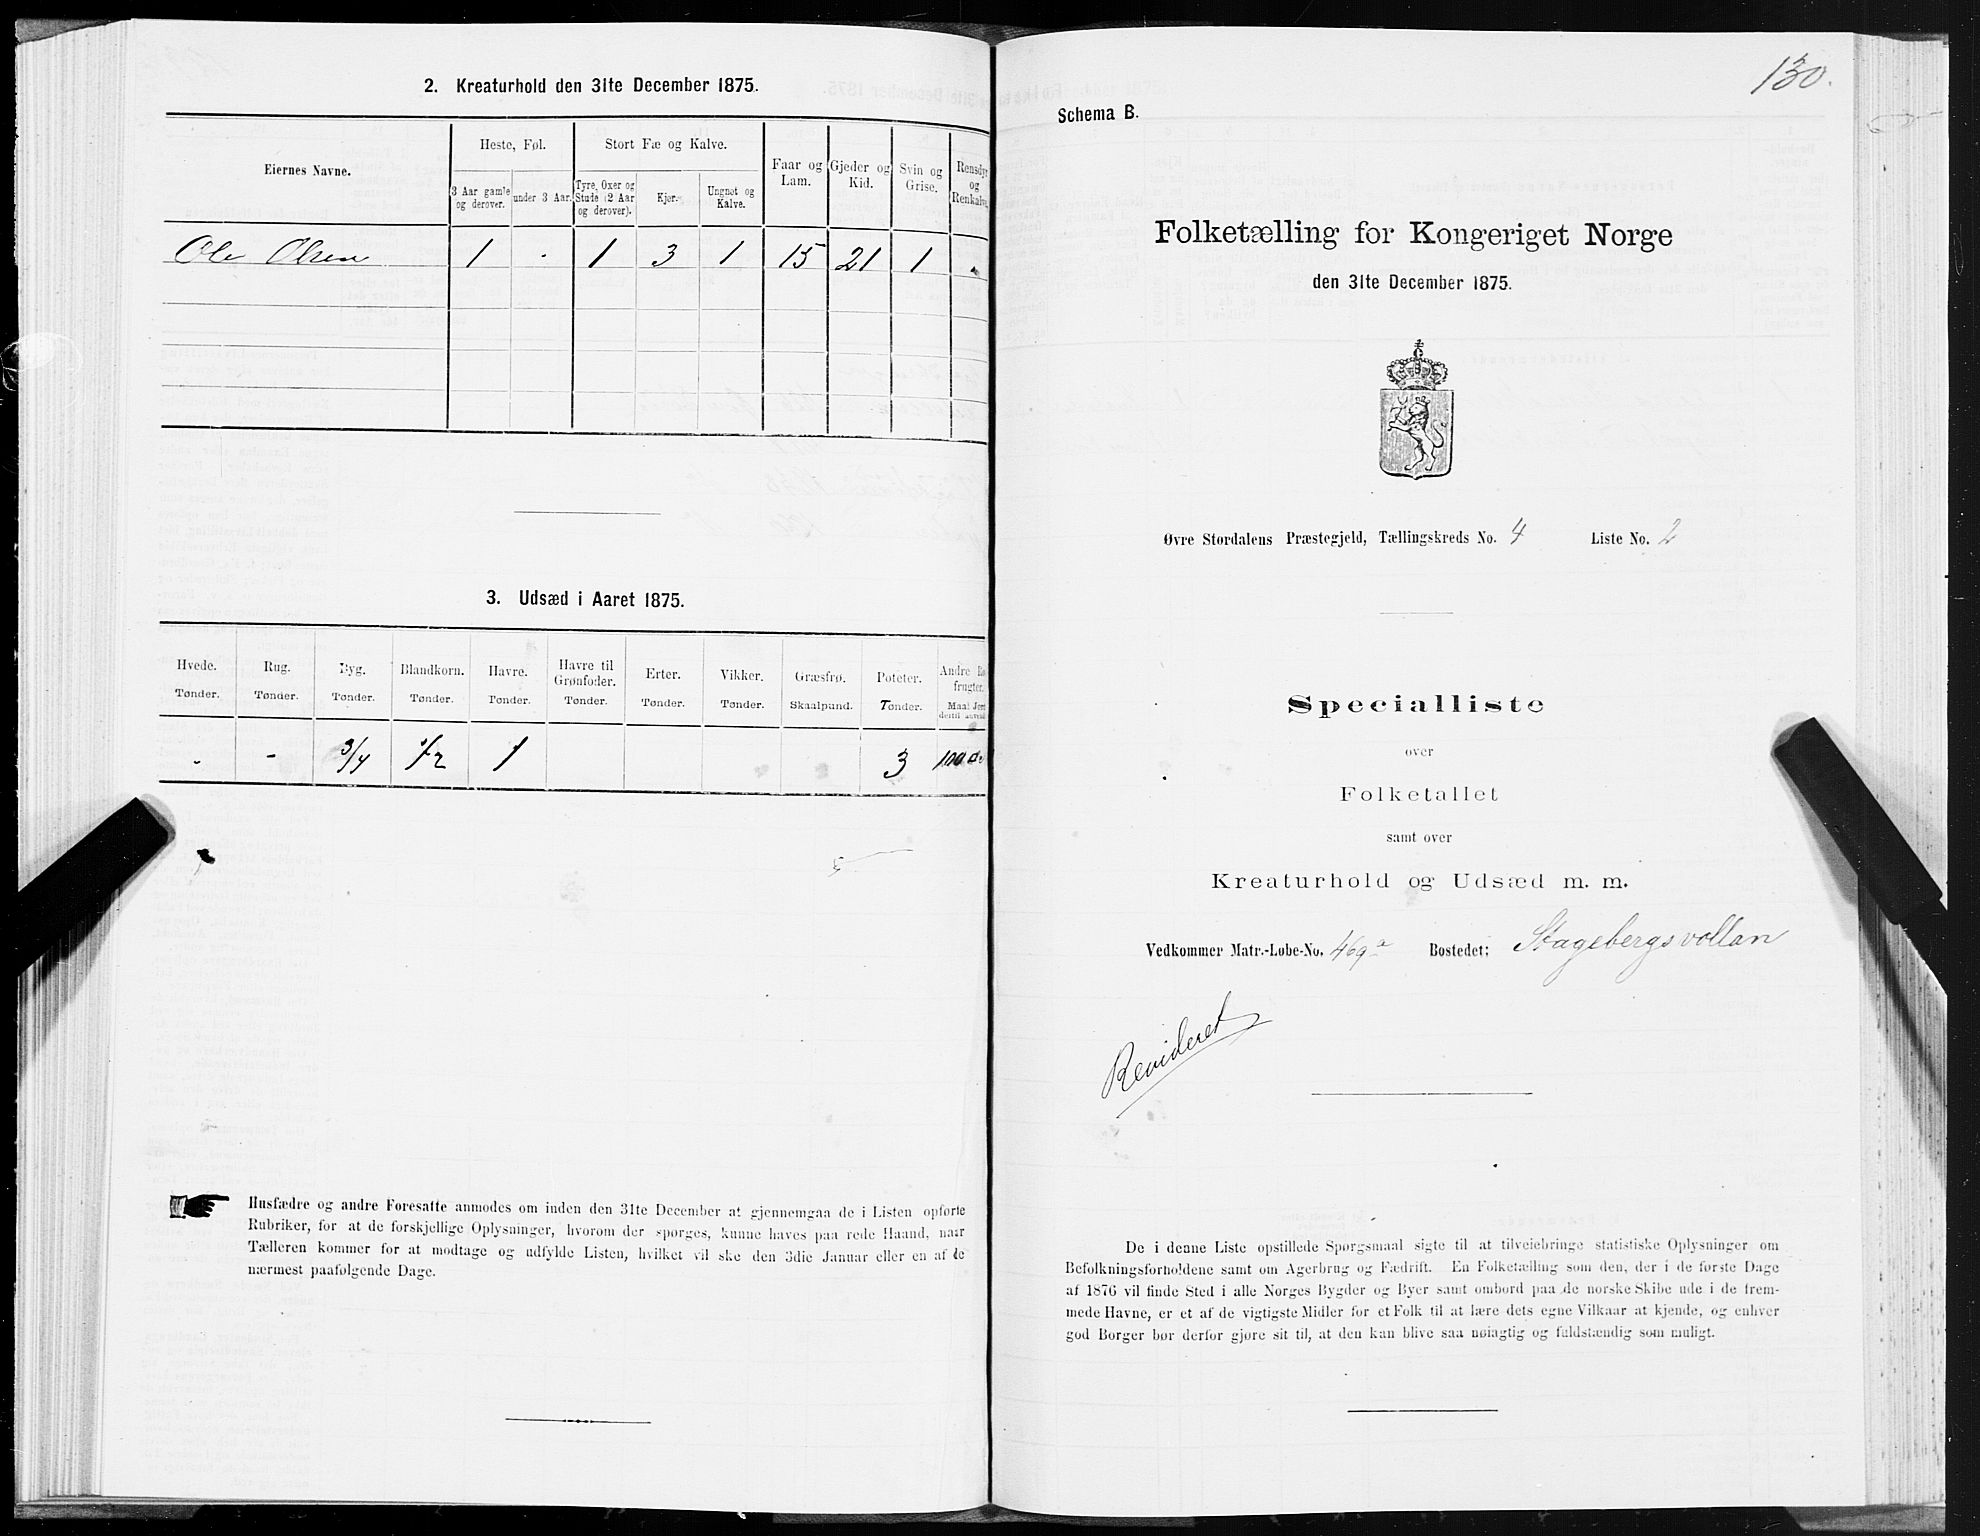 2. Kreaturhold den 31te December 1875.
Eiernes Navne.
Heste, Føl.
Stort Fæ og Kalve.
Faar og Lam.
Gjeder og Kid.
Svin og Grise.
Rensdyr og Renkalve.
3 Aar gamle og derover.
under 3 Aar.
Tyre, Oxer og Stude (2 Aar og derover).
Kjør.
Ungnøt og Kalve.
Ole Olsen 1 - 1 3 1 15 21 1 -
3. Udsæd i Aaret 1875.
Hvede. Rug. Byg. Blandkorn. Havre. Havre til Grønfoder. Erter. Vikker. Græsfrø. Poteter. Andre Ro frugter.
Tønder. Tønder. Tønder. Tønder. Tønder. Tønder. Tønder. Tønder. Skaalpund. Tønder. Maal Jord dertil anvend
- - 3/4 1/2 1 3 100
Husfædre og andre Foresatte anmodes om inden den 31te December at gjennemgaa de i Listen opførte
Rubriker, for at de forskjellige Oplysninger, hvorom der spørges, kunne haves paa rede Haand, naar
Tælleren kommer for at modtage og udfylde Listen, hvilket vil ske den 3die Januar eller en af de
nærmest paafølgende Dage.
130.
Schema B.
Folketælling for Kongeriget Norge
den 31te December 1875.
Øvre Stordalens Præstegjeld, Tællingskreds No. 4 Liste No. 2
Specialliste
over
Folketallet
samt over
Kreaturhold og Udsæd m. m.
Vedkommer Matr.-Løbe-No. 469a Bostedet: Stagebergsvollan
Revideret
De i denne Liste opstillede Spørgsmaal sigte til at tilveiebringe statistiske Oplysninger om
Befolkningsforholdene samt om Agerbrug og Fædrift. En Folketælling som den, der i de første Dage
af 1876 vil finde Sted i alle Norges Bygder og Byer samt ombord paa de norske Skibe ude i de frem-
mede Havne, er et af de vigtigste Midler for et Folk til at lære dets egne Vilkaar at kjende, og enhver
god Borger bør derfor gjøre sit til, at den kan blive saa nøiagtig og fuldstændig som muligt.